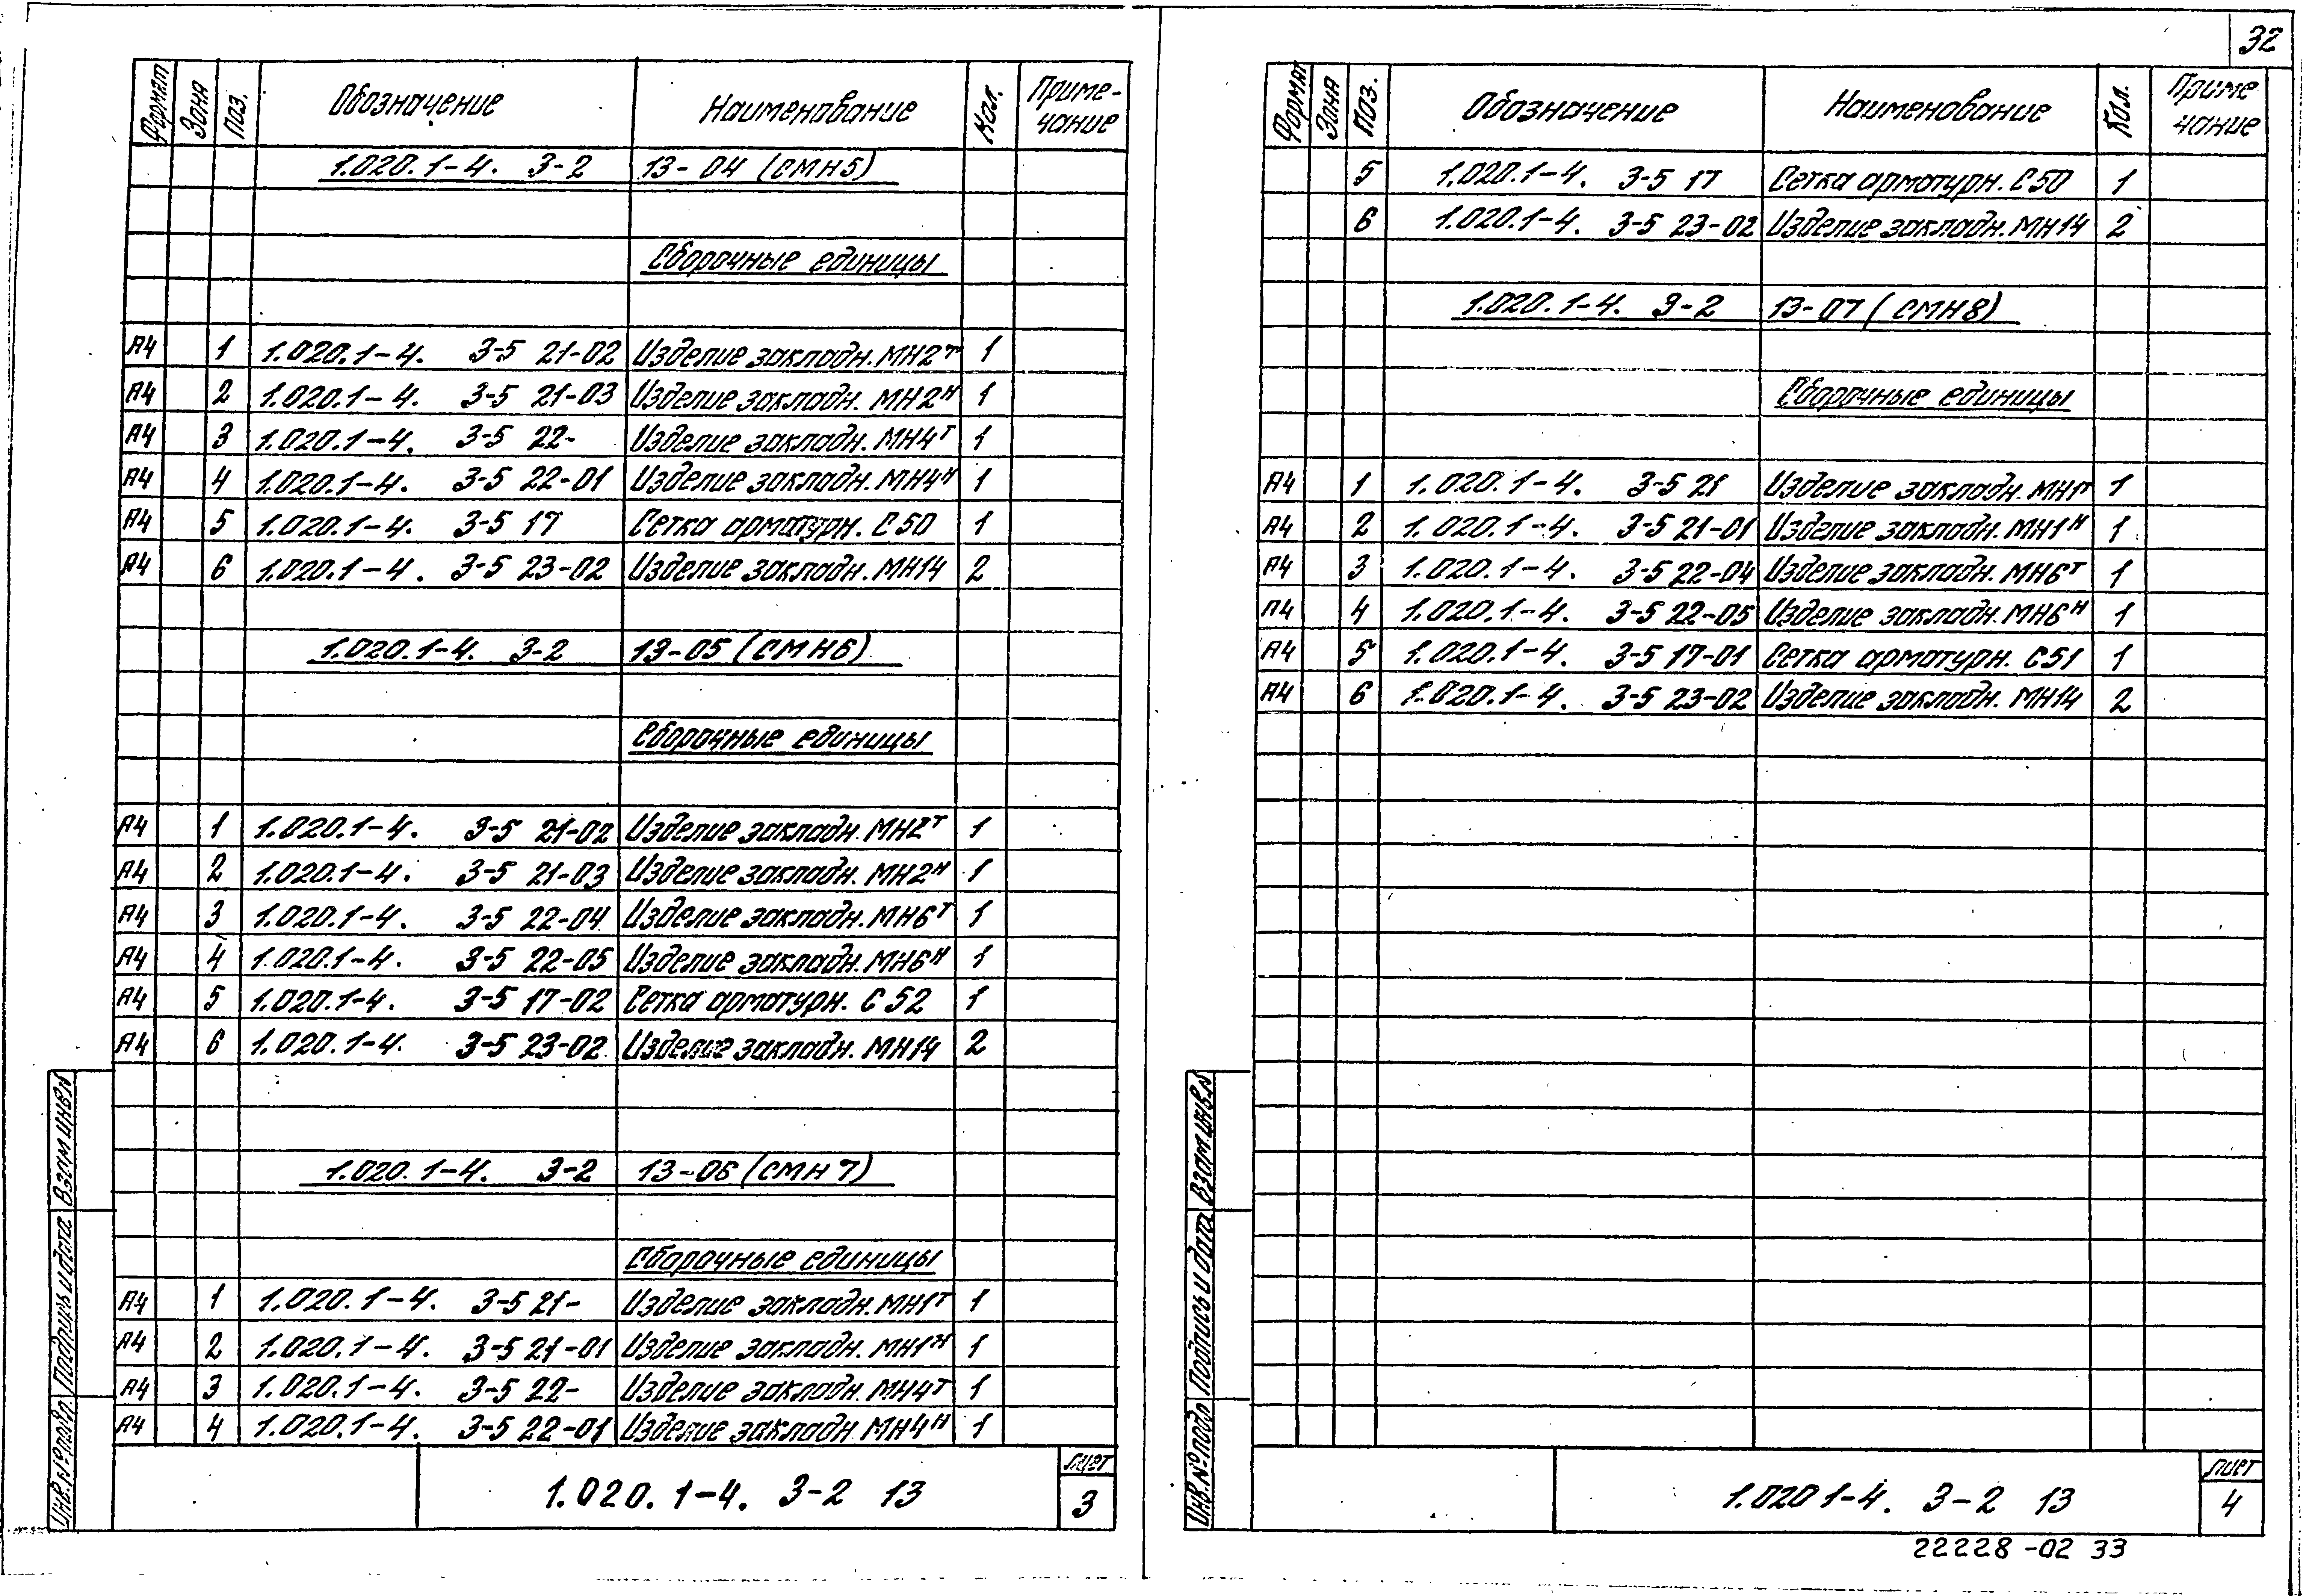 32
Формат Зона Поз. Обозначение Наименование Кол. Приме-чание
1.020.1-4. 3-2 13-04 (СМН5)
Сборочные единицы
А4 1 1.020.1-4. 3-5 21-02 Изделие закладн. МН2т 1
А4 2 1.020.1-4. 3-5 21-03 Изделие закладн. МН2н 1
А4 3 1.020.1-4. 3-5 22- Изделие закладн. МН4т 1
А4 4 1.020.1-4. 3-5 22-01 Изделие закладн. МН4н 1
А4 5 1.020.1-4. 3-5 17 Сетка арматурн. С50 1
А4 6 1.020.1-4. 3-5 23-02 Изделие закладн. МН14 2
1.020.1-4. 3-2 13-05 (СМН6)
Сборочные единицы
А4 1 1.020.1-4. 3-5 21-02 Изделие закладн. МН2т 1
А4 2 1.020.1-4. 3-5 21-03 Изделие закладн. МН2н 1
А4 3 1.020.1-4. 3-5 22-04 Изделие закладн. МН6т 1
А4 4 1.020.1-4. 3-5 22-05 Изделие закладн. МН6н 1
А4 5 1.020.1-4. 3-5 17-02 Сетка арматурн. С 52 1
А4 6 1.020.1-4. 3-5 23-02 Изделие закладн. МН14 2
1.020.1-4. 3-2 13-06 (СМН7)
Сборочные единицы
А4 1 1.020.1-4. 3-5 21- Изделие закладн. МН1т 1
А4 2 1.020.1-4. 3-5 21-01 Изделие закладн. МН1н 1
А4 3 1.020.1-4. 3-5 22- Изделие закладн. МН4т 1
А4 4 1.020.1-4. 3-5 22-01 Изделие закладн. МН4н 1
Инв.№подл. Подпись и дата Взам инв.№
1.020.1-4. 3-2 13
Лист
3
Формат Зона Поз. Обозначение Наименование Кол. Приме-чание
5 1.020.1-4. 3-5 17 Сетка арматурн. С50 1
6 1.020.1-4. 3-5 23-02 Изделие закладн. МН14 2
1.020.1-4. 3-2 13-07 (СМН8)
Сборочные единицы
А4 1 1.020.1-4. 3-5 21 Изделие закладн. МН1т 1
А4 2 1.020.1-4. 3-5 21-01 Изделие закладн. МН1н 1
А4 3 1.020.1-4. 3-5 22-04 Изделие закладн. МН6т 1
А4 4 1.020.1-4. 3-5 22-05 Изделие закладн. МН6н 1
А4 5 1.020.1-4. 3-5 17-01 Сетка арматурн. С51 1
А4 6 1.020.1-4. 3-5 23-02 Изделие закладн. МН14 2
Инв.№подл Подпись и дата Взам.инв.№
1.020 1-4. 3-2 13
Лист
4
22228-02 33